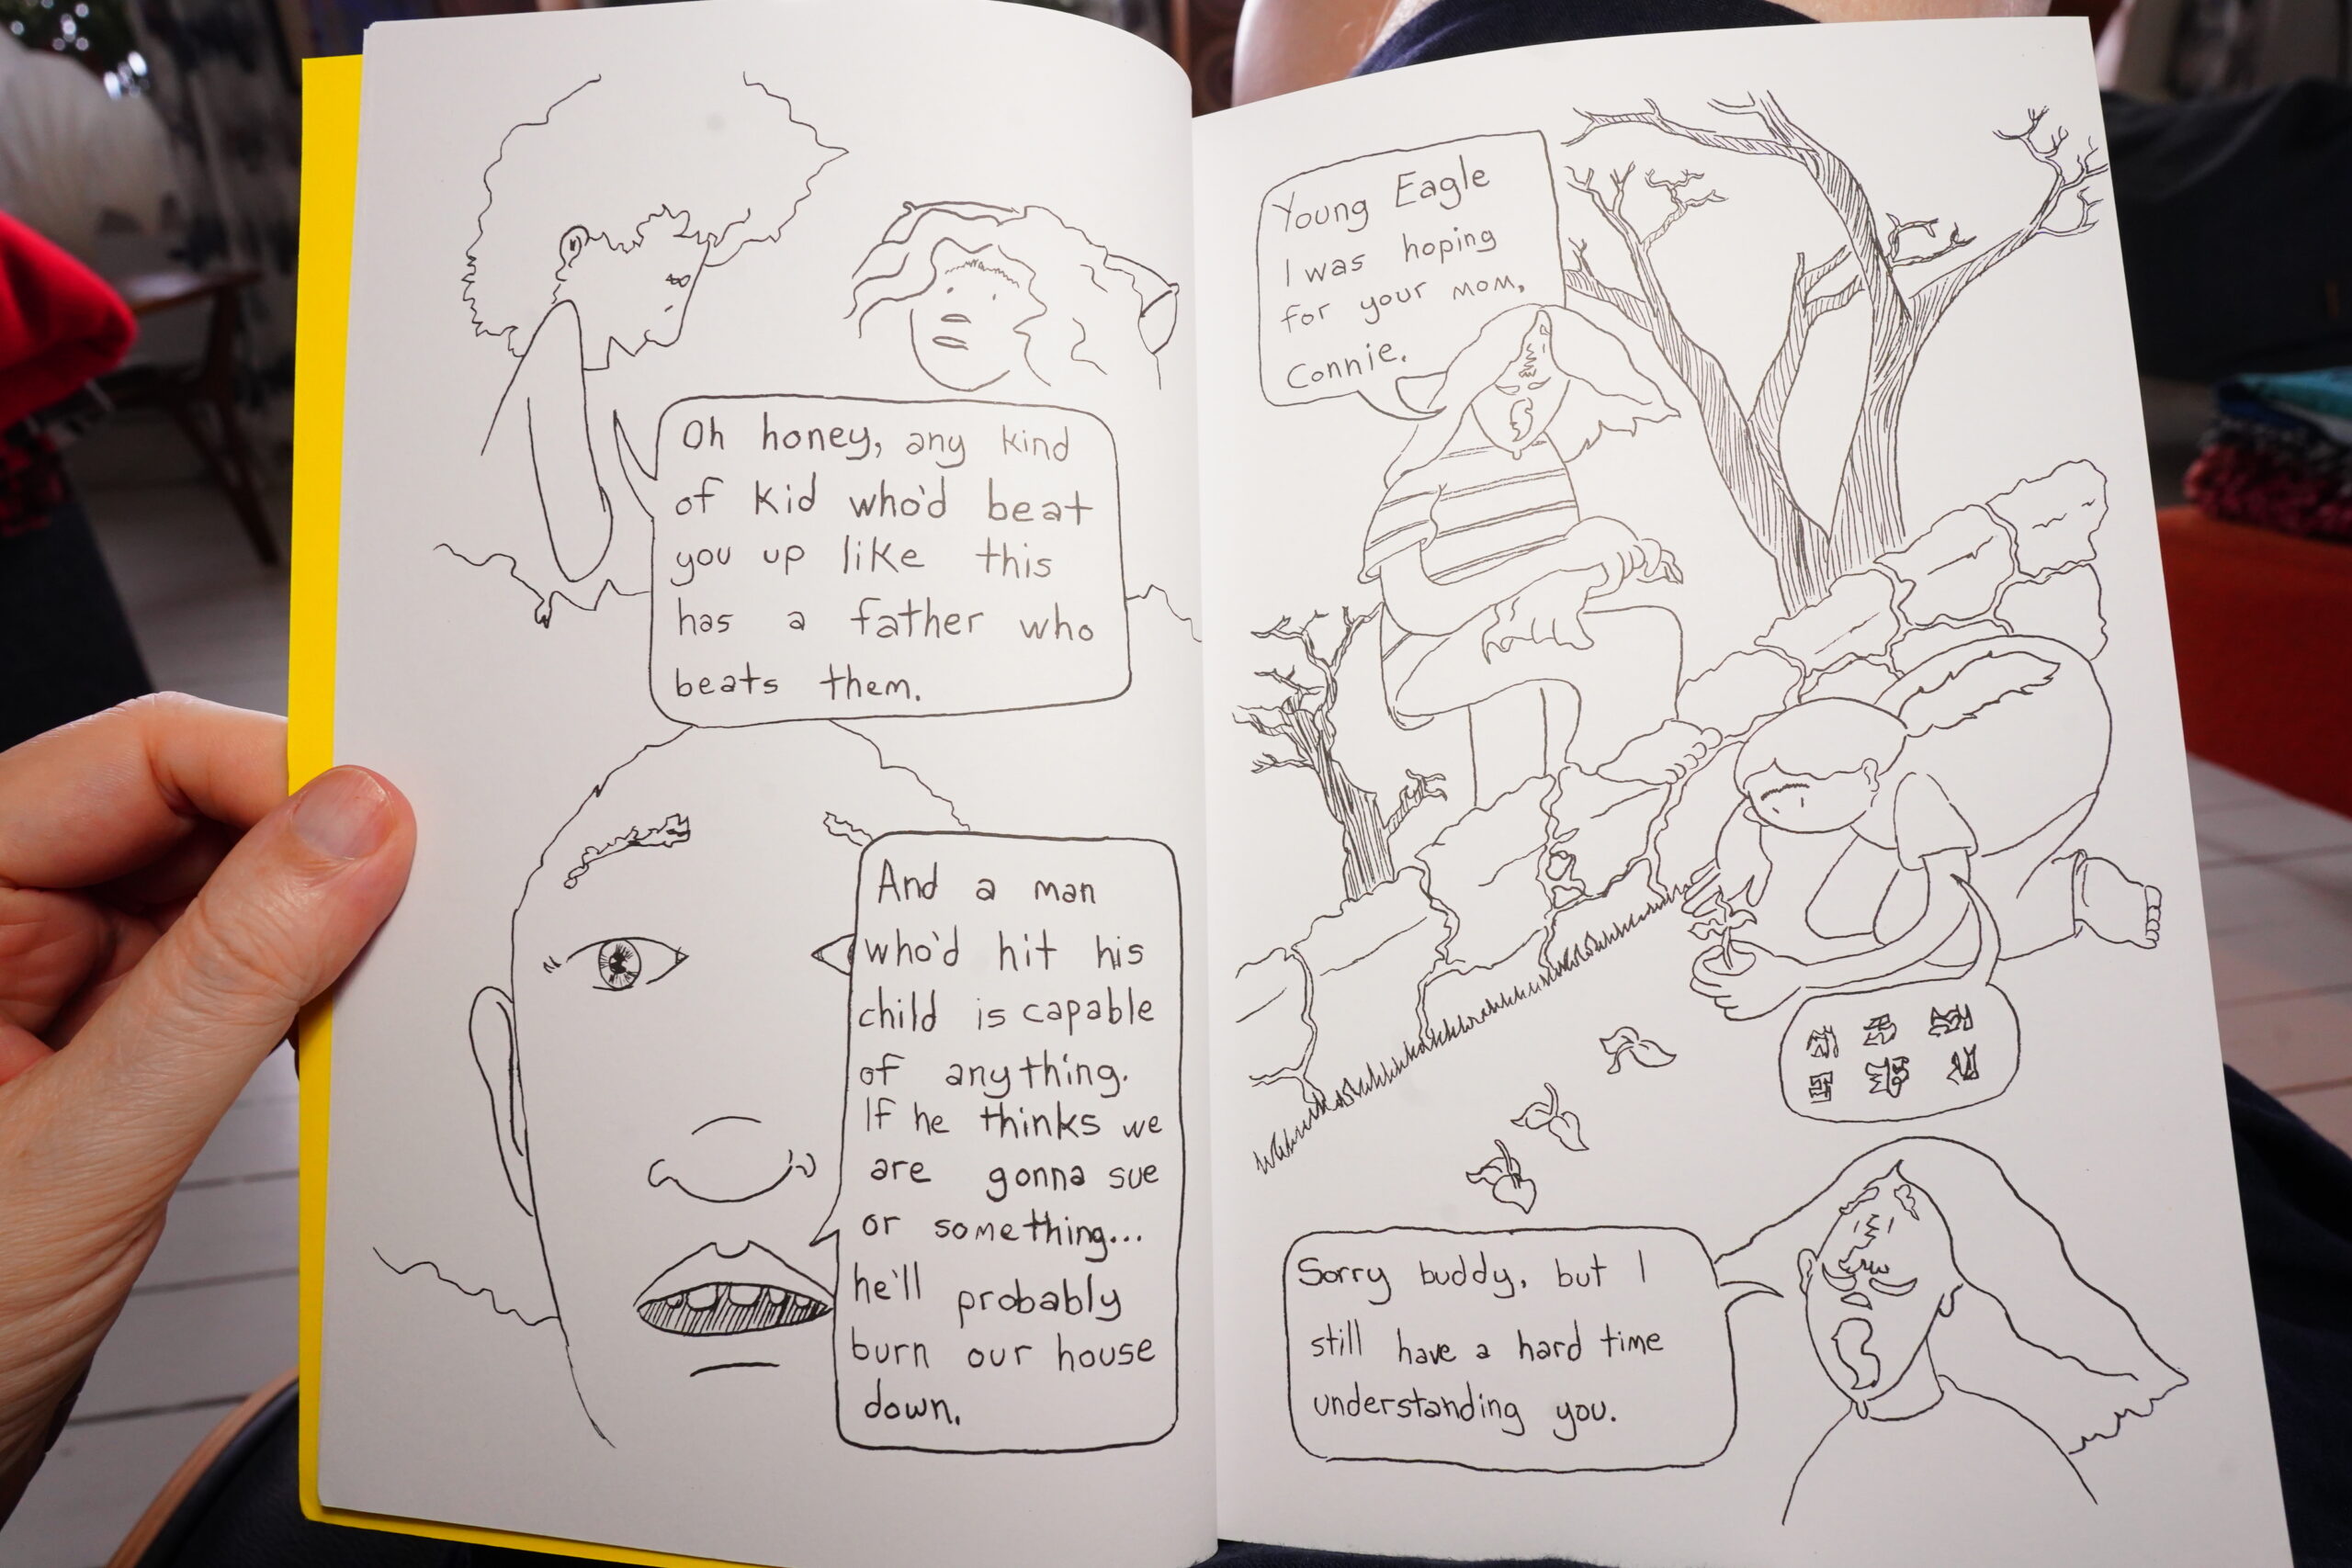 Oh honey, any kind
of kid who'd beat
you up like this
has a father who
beats them.
And a man
who'd hit his
child is capable
of anything.
If he thinks we
are gonna sue
or something...
he'll probably
burn our house
down.
Young Eagle
I was hoping
for your mom,
Connie.
Sorry buddy, but I
still have a hard time
understanding you.